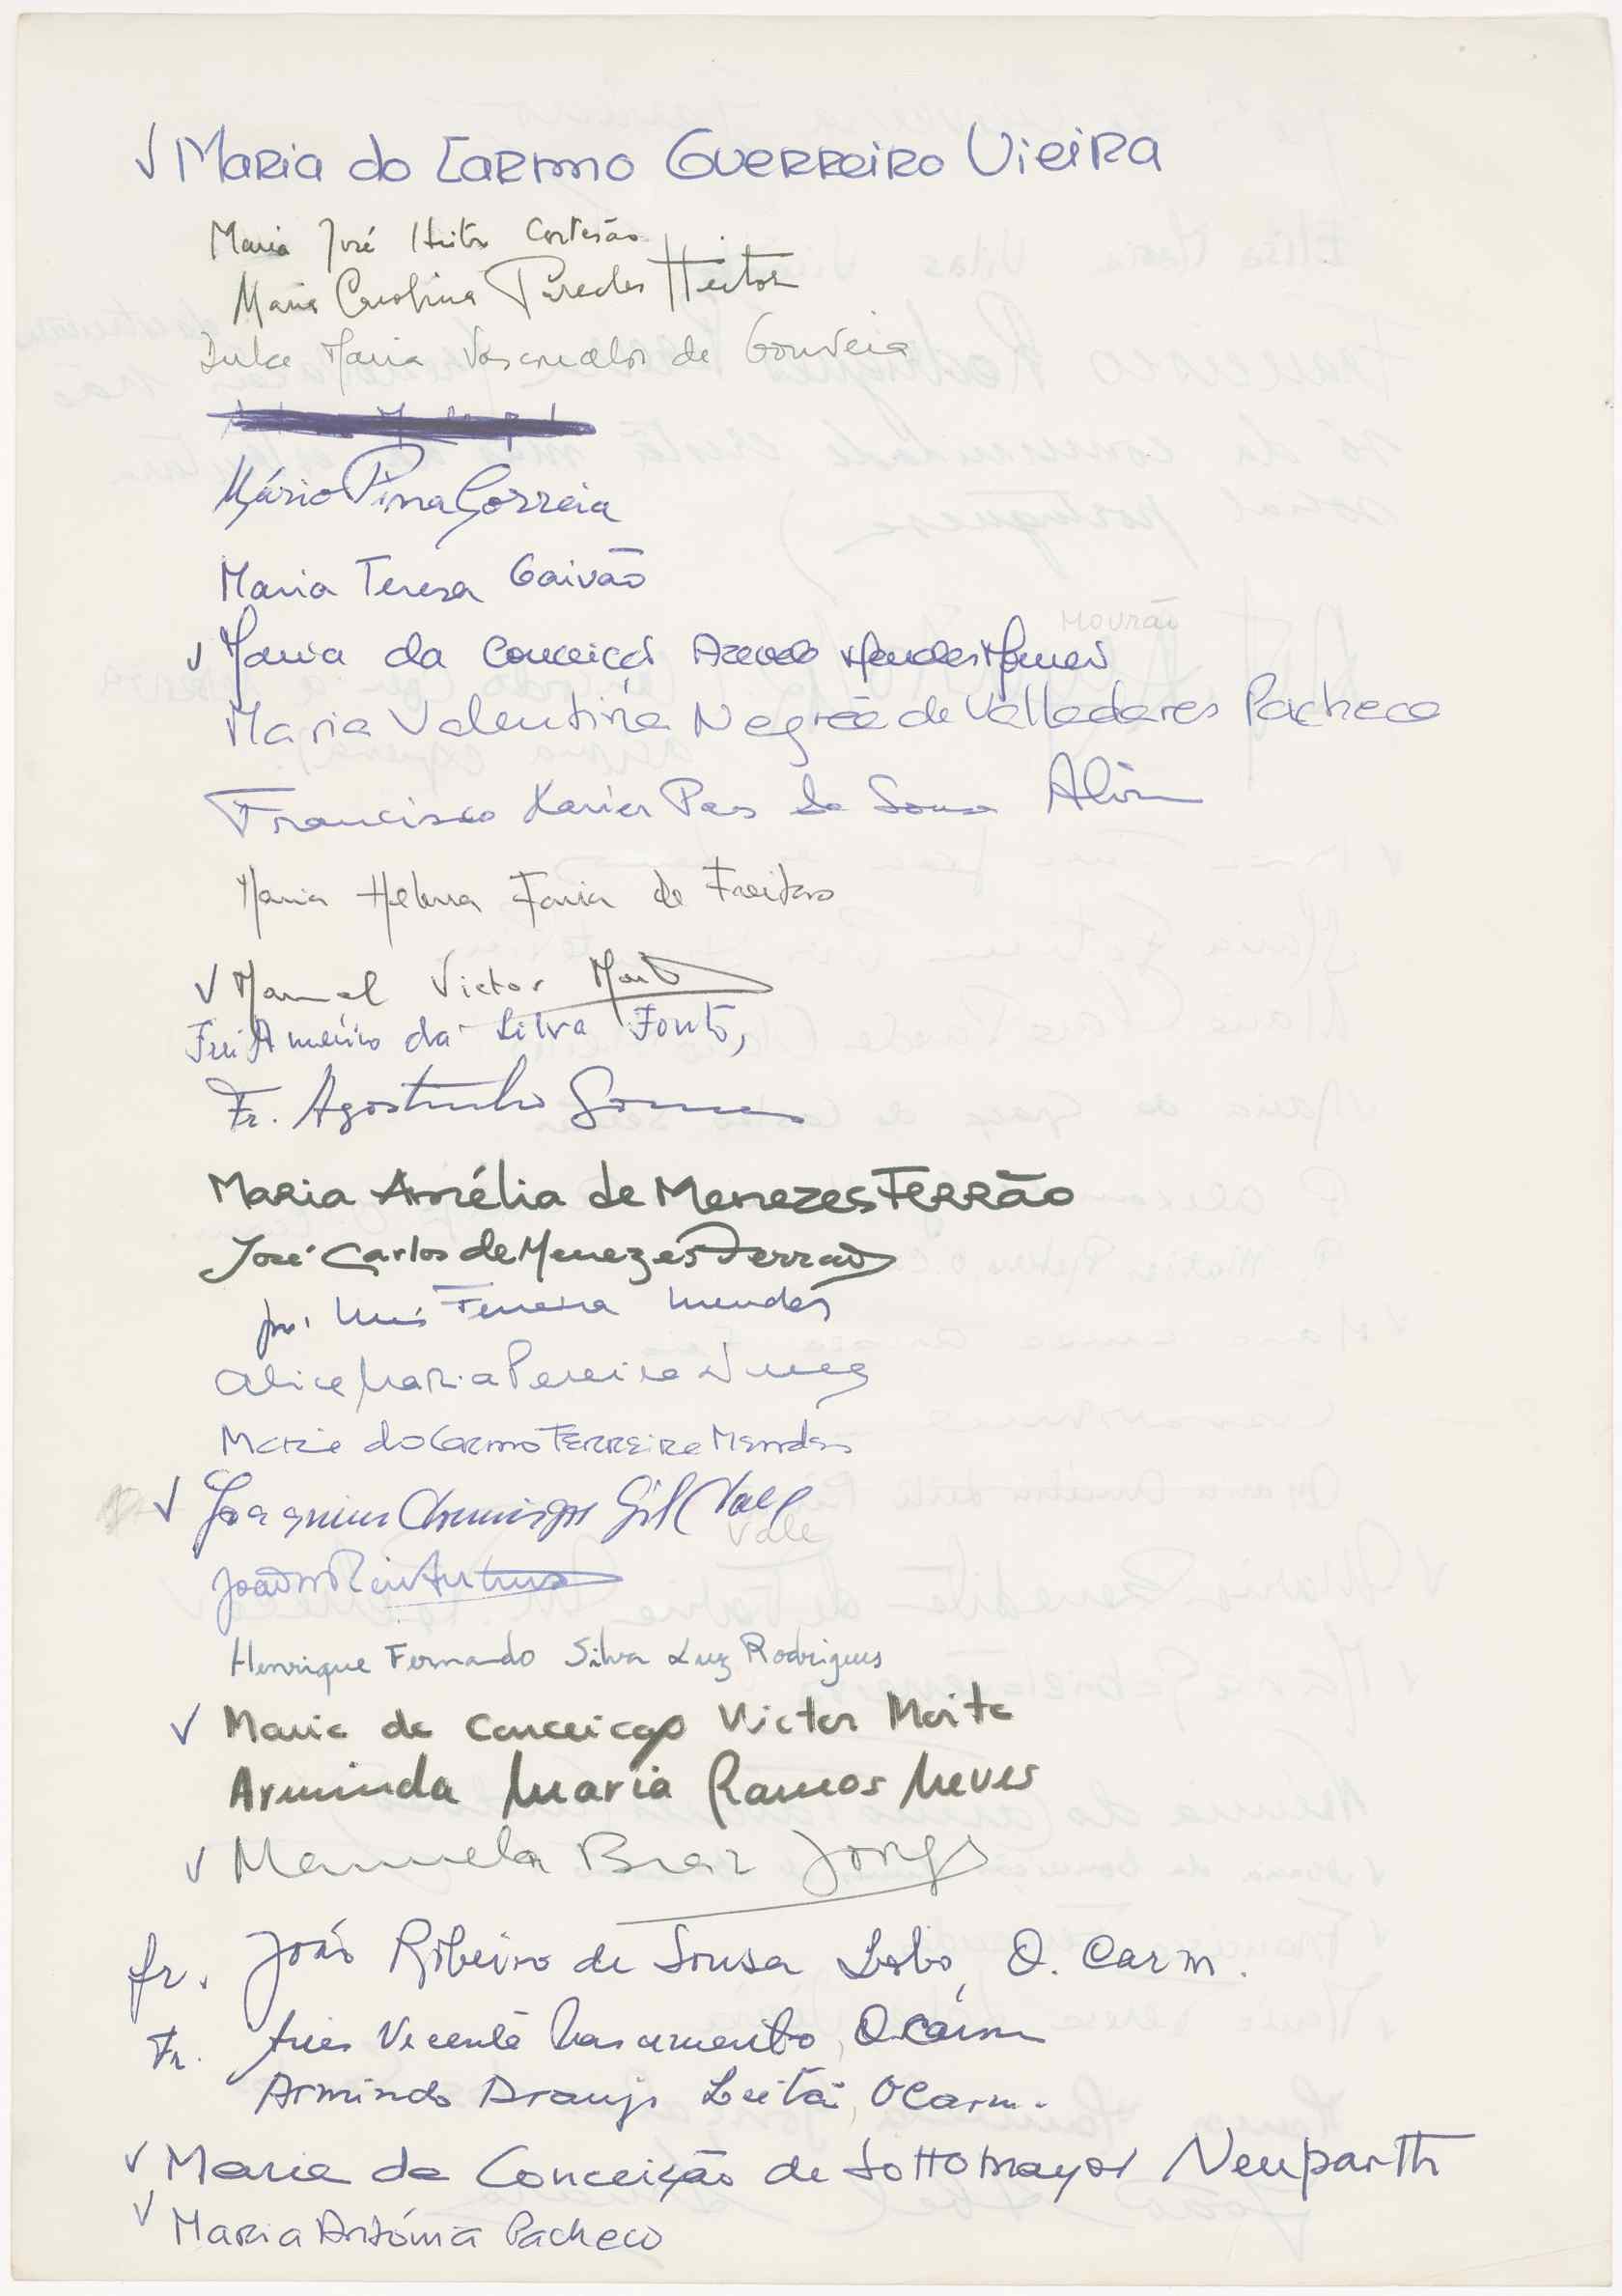 √ Maria do Carmo Guerreiro Vieira
Maria José Heitor Cortesão
Maria Carolina Paredes Heitor
Dulce Maria Vasconcelos de Gouveia
Mário Pina Correia
Maria Teresa Gaivão
Mourão
√ Maria da Conceição Azevedo Mendes
Maria Valentina Negrão de Valladares Pacheco
Francisco Xavier Pais de Sousa
Maria Helena Faria de Freitas
√ Manuel Victor
Frei Américo da Silva
Fr. Agostinho
Maria Amélia de Menezes Ferrão
José Carlos de Menezes Ferrão
fr. Luís Ferreira Mendes
Alice Maria Pereira
Maria do Carmo Ferreira Mendes
√ Joaquim Domingos Gil Vale
Vale
João
Henrique Fernando Silva Luz Rodrigues
√ Maria da Conceição Victor Moita
Arminda Maria Ramos Neves
√ Manuela Braz Jorge
fr. João Ribeiro de Sousa Lobo, O. Carm.
Fr. Vicente Nascimento, O. Carm
Armindo Araujo Leitão, O Carm.
√ Maria da Conceição de Sottomayor Neuparth
√ Maria Antónia Pacheco